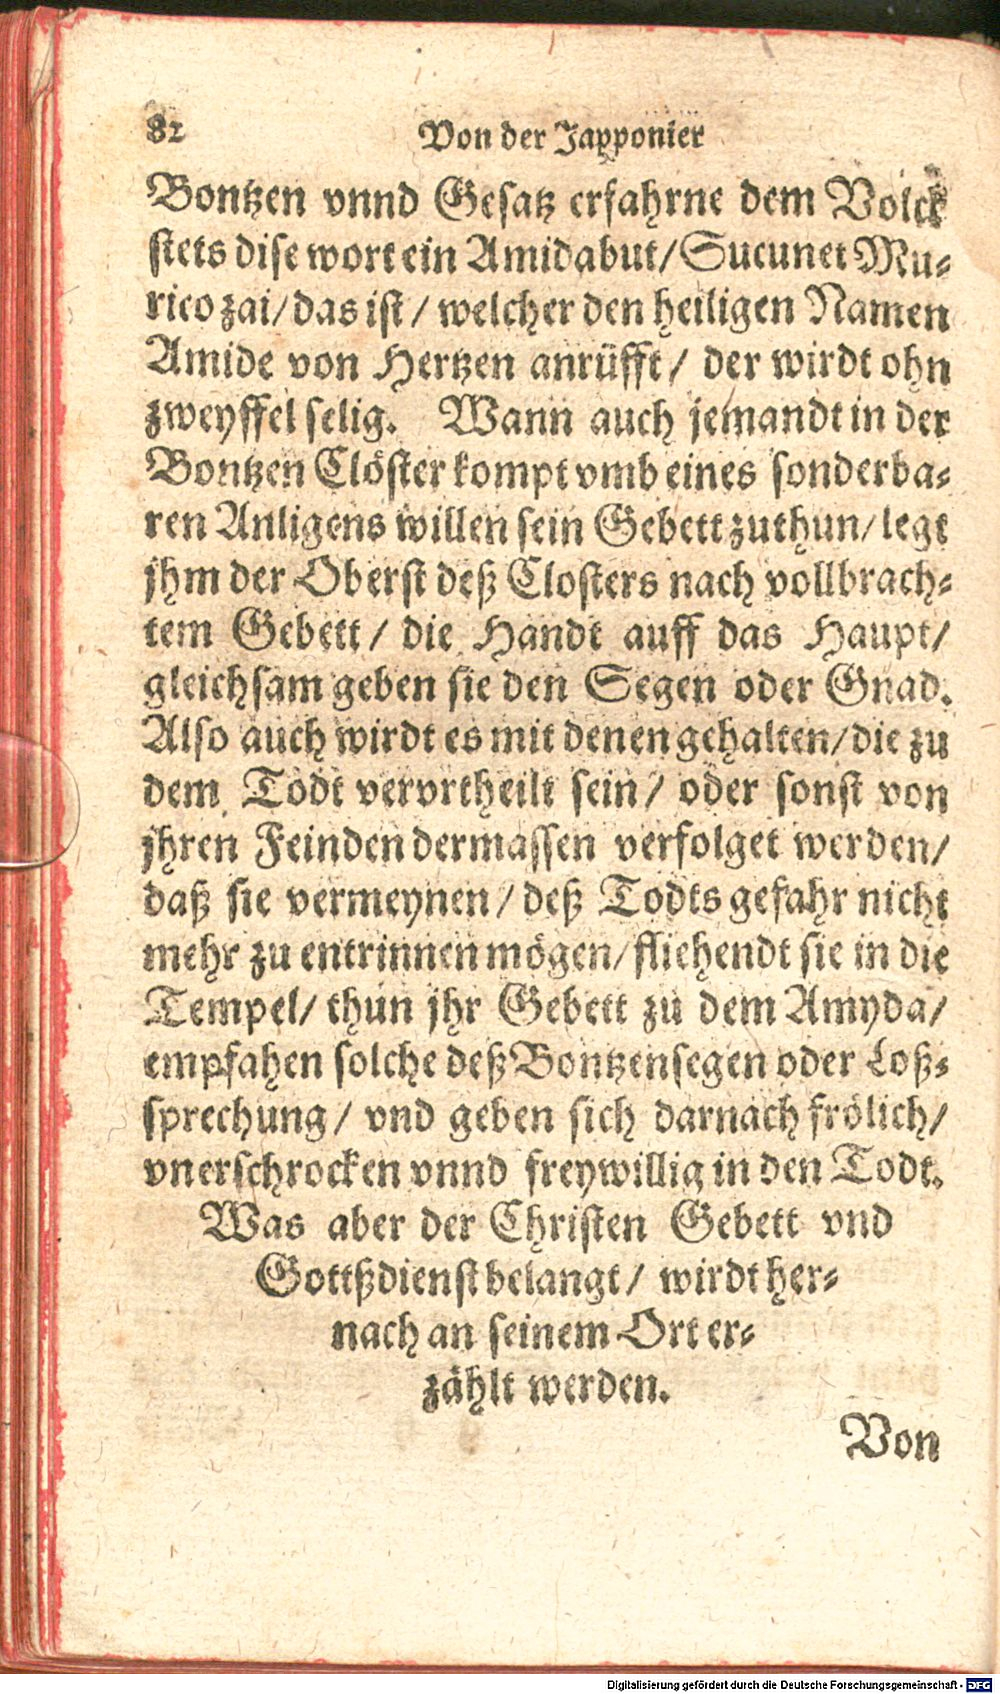 82 Von der Japponier
Bontzen vnnd Gesatz erfahrne dem Volck
stets dise wort ein Amidabut/ Sucunet Mu⸗
rico zai/ das ist/ welcher den heiligen Namen
Amide von Hertzen anrüfft/ der wirdt ohn
zweyffel selig. Wann auch jemandt in der
Bontzen Clöster kompt vmb eines sonderba⸗
ren Anligens willen sein Gebett zuthun/ legt
jhm der Oberst deß Closters nach vollbrach⸗
tem Gebett/ die Handt auff das Haupt/
gleichsam geben sie den Segen oder Gnad.
Also auch wirdt es mit denen gehalten/ die zu
dem Todt vervrtheilt sein/ oder sonst von
jhren Feinden dermassen verfolget werden/
daß sie vermeynen/ deß Todts gefahr nicht
mehr zu entrinnen mögen/ fliehendt sie in die
Tempel/ thun jhr Gebett zu dem Amyda/
empfahen solche deß Bontzensegen oder Loß⸗
sprechung/ vnd geben sich darnach frölich/
vnerschrocken vnnd freywillig in den Todt.
Was aber der Christen Gebett vnd
Gottßdienst belangt/ wirdt her⸗
nach an seinem Ort er⸗
zählt werden.
Von
Digitalisierung gefördert durch die Deutsche Forschungsgemeinschaft - DFG